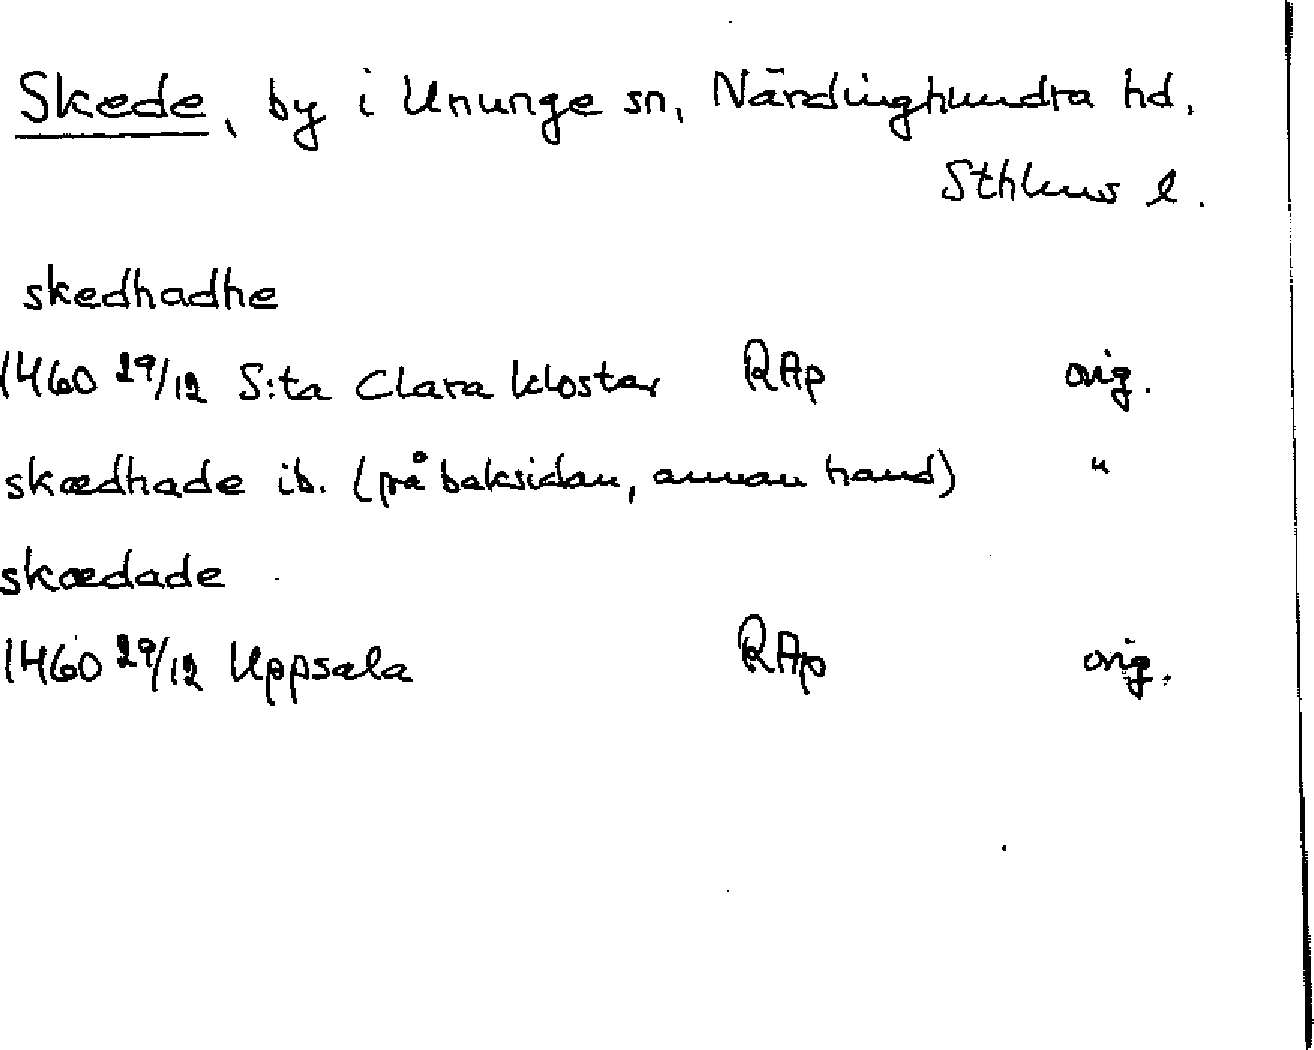 Skede, by i Ununge sn, Närdinghundra hd.
Sthlms l.
skedhadhe
1460 29/12 S:ta Clara kloster RAp orig.
skædhade ib. (på baksidan, annan hand) "
skædade
1460 29/12 Uppsala RAp orig.